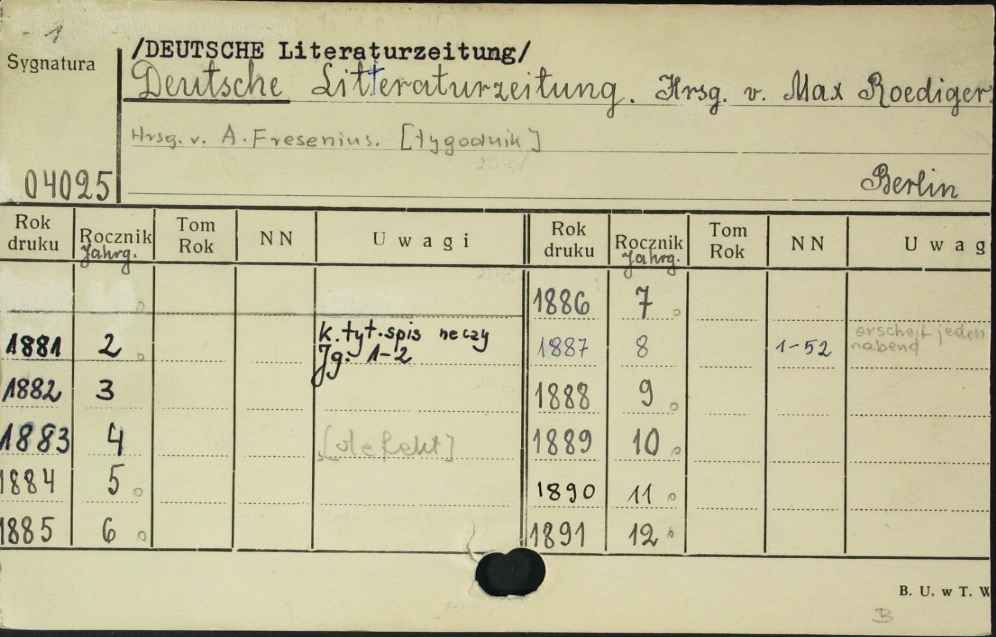 - 1
Sygnatura
/DEUTSCHE Literaturzeitung/
Deutsche Litteraturzeitung. Hrsg. v. Max Roediger.
Hrsg. v. A. Fresenius. [tygodnik]
04025
Berlin
Rok druku Rocznik Jahrg. Tom Rok NN Uwagi Rok druku Rocznik Jahrg. Tom Rok NN Uwag
1886 7
k. tyt. spis rzeczy
1881 2 Jg: 1-2 1887 8 1-52 erscheint jeden
1882 3 1888 9
1883 4 [defekt] 1889 10
1884 5 1890 11
1885 6 1891 12
B. U. w T. W
B